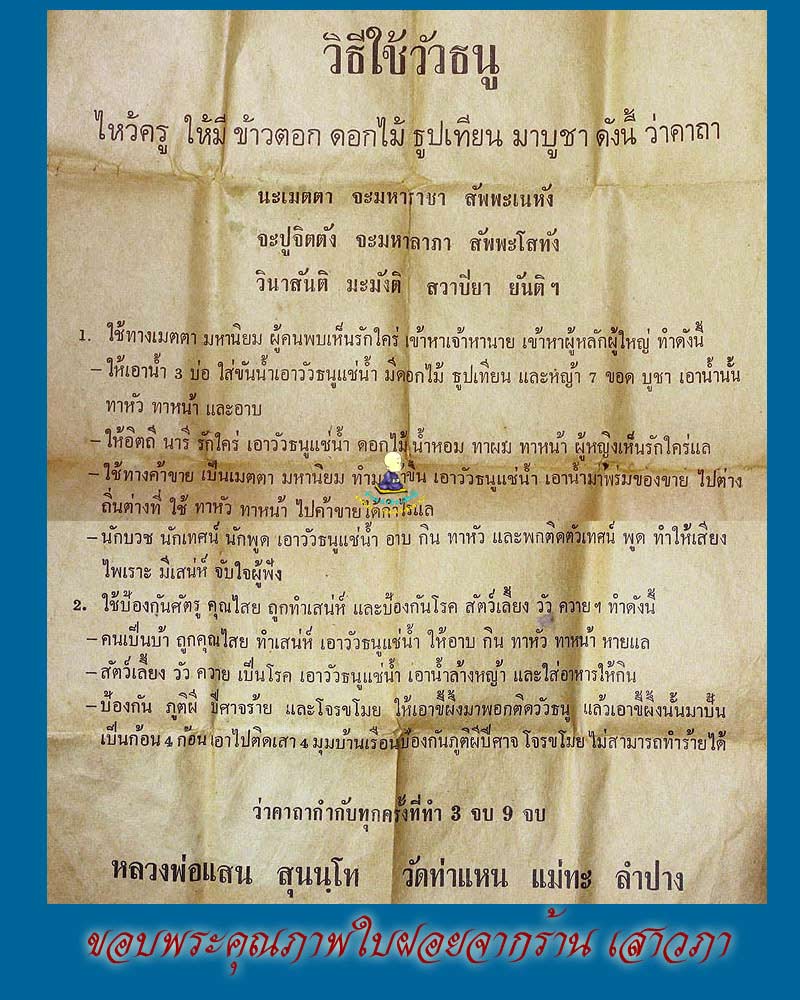 วิธีใช้วัวธนู
ไหว้ครู ให้มี ข้าวตอก ดอกไม้ ธูปเทียน มาบูชา ดังนี้ ว่าคาถา
นะเมตตา จะมหาราชา สัพพะเนหัง
จะปูจิตตัง จะมหาลาภา สัพพะโสทัง
วินาสันติ มะมังติ สวาปียา ยันติฯ
1. ใช้ทางเมตตา มหานิยม ผู้คนพบเห็นรักใคร่ เข้าหาเจ้าหานาย เข้าหาผู้หลักผู้ใหญ่ ทำดังนี้
–ให้เอาน้ำ 3 บ่อ ใส่ขันน้ำเอาวัวธนูแช่น้ำ มีดอกไม้ ธูปเทียน และหญ้า 7 ขอด บูชา เอาน้ำนั้น
ทาหัว ทาหน้า และอาบ
–ให้อิตถี นารี รักใคร่ เอาวัวธนูแช่น้ำ ดอกไม้ น้ำหอม ทาผม ทาหน้า ผู้หญิงเห็นรักใคร่แล
–ใช้ทางค้าขาย เป็นเมตตา มหานิยม เอาวัวธนูแช่น้ำ เอาน้ำมาพร่มของขาย ไปต่าง
ถิ่นต่างที่ ใช้ ทาหัว ทาหน้า ไปค้าขายได้กำไรแล
–นักบวช นักเทศน์ นักพูด เอาวัวธนูแช่น้ำ อาบ กิน ทาหัว และพกติดตัวเทศน์ พูด ทำให้เสียง
ไพเราะ มีเสน่ห์ จับใจผู้ฟัง
2. ใช้ป้องกันศัตรู คุณไสย ถูกทำเสน่ห์ และป้องกันโรค สัตว์เลี้ยง วัว ควายฯ ทำดังนี้
–คนเป็นบ้า ถูกคุณไสย ทำเสน่ห์ เอาวัวธนูแช่น้ำ ให้อาบ กิน ทาหัว ทาหน้า หายแล
–สัตว์เลี้ยง วัว ควาย เป็นโรค เอาวัวธนูแช่น้ำ เอาน้ำล้างหญ้า และใส่อาหารให้กิน
–ป้องกัน ภูติผี ปีศาจร้าย และโจรขโมย ให้เอาขี้ผึ้งมาพอกติดวัวธนู แล้วเอาขี้ผึ้งนั้นมาปั้น
เป็นก้อน 4 ก้อน เอาไปติดเสา 4 มุมบ้านเรือนป้องกันภูติผีปีศาจ โจรขโมย ไม่สามารถทำร้ายได้
ว่าคาถากำกับทุกครั้งที่ทำ 3 จบ 9 จบ
หลวงพ่อแสน สุนนฺโท วัดท่าแหน แม่ทะ ลำปาง
ขอบพระคุณภาพใบฝอยจากร้าน เสาวภา